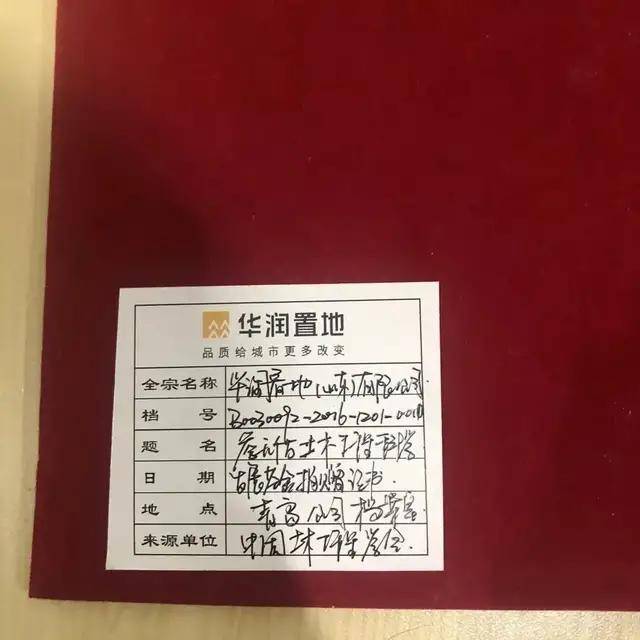 华润置地
品质给城市更多改变
全宗名称 华润置地(山东)有限公司
档 号
题 名 詹天佑土木工程科学
日 期 发展基金捐赠证书.
地 点 青岛公司档案室
来源单位 中国土木工程学会.